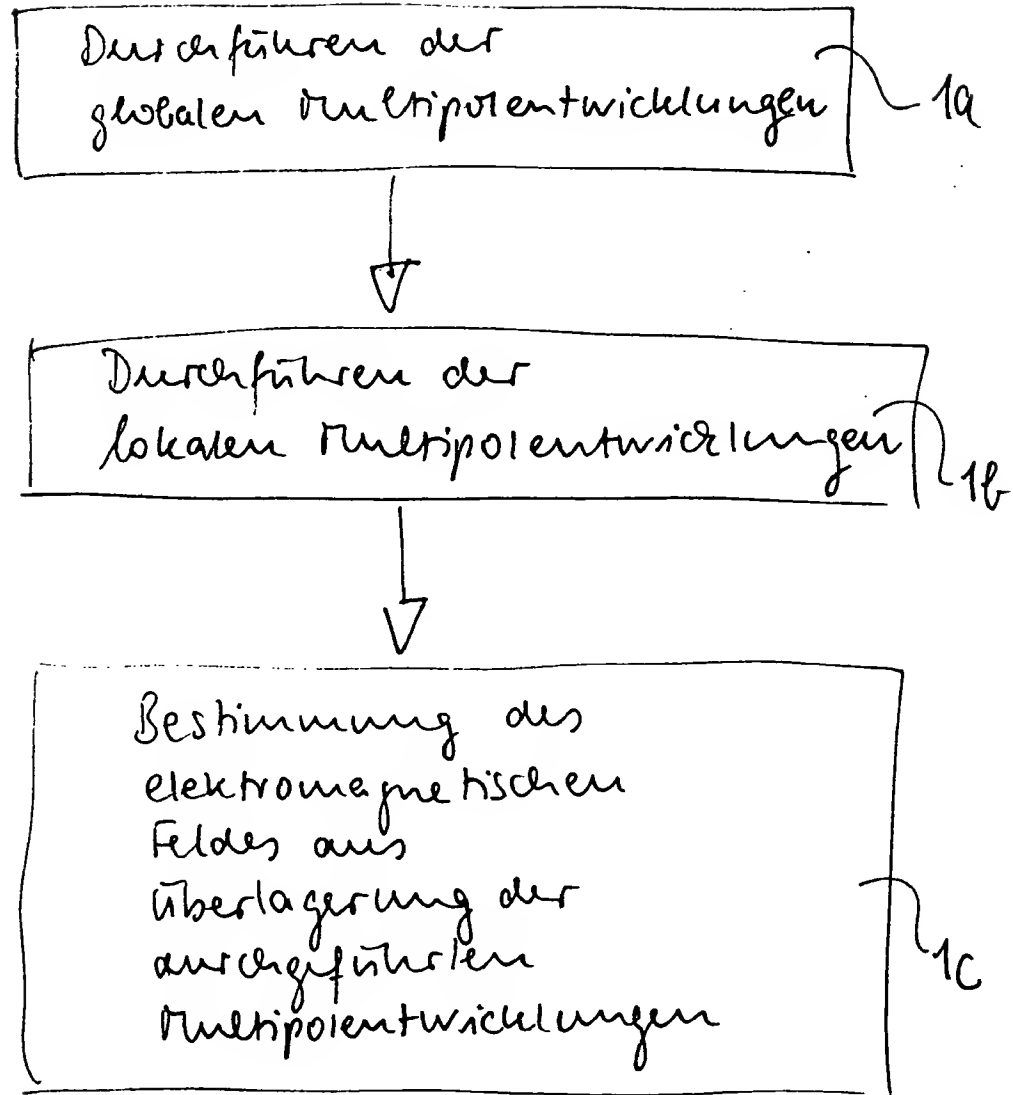 Durchführen der
globalen Multipolentwicklungen
1a
Durchführen der
lokalen Multipolentwicklungen
1b
Bestimmung des
elektromagnetischen
Feldes aus
Überlagerung der
durchgeführten
Multipolentwicklungen
1c